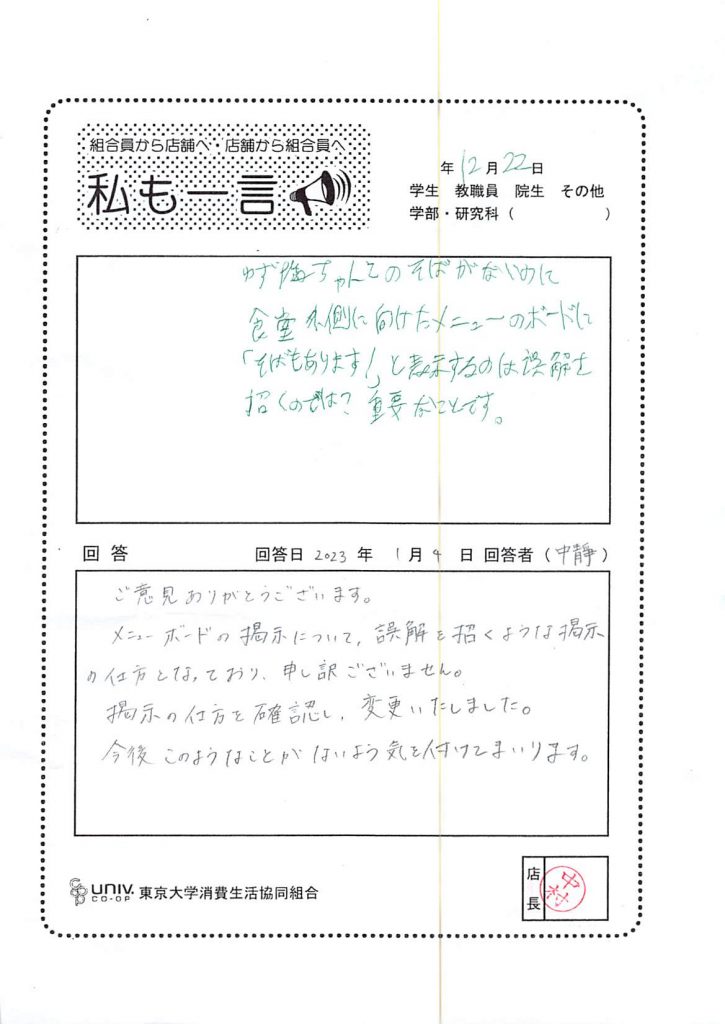 組合員から店舗へ・店舗から組合員へ
私も一言
年 12月 22日
学生 教職員 院生 その他
学部・研究科（ ）
ゆず梅ちゃんこのそばがないのに
食堂外側に向けたメニューのボードに
「そばもあります!」と表示するのは誤解を
招くのでは? 重要なことです。
回答 回答日 2023 年 1月 4 日 回答者（中静）
ご意見ありがとうございます。
メニューボードの掲示について、誤解を招くような掲示
の仕方となっており、申し訳ございません。
掲示の仕方を確認し、変更いたしました。
今後このようなことがないよう気を付けてまいります。
UNIV. CO-OP 東京大学消費生活協同組合
店長 中村